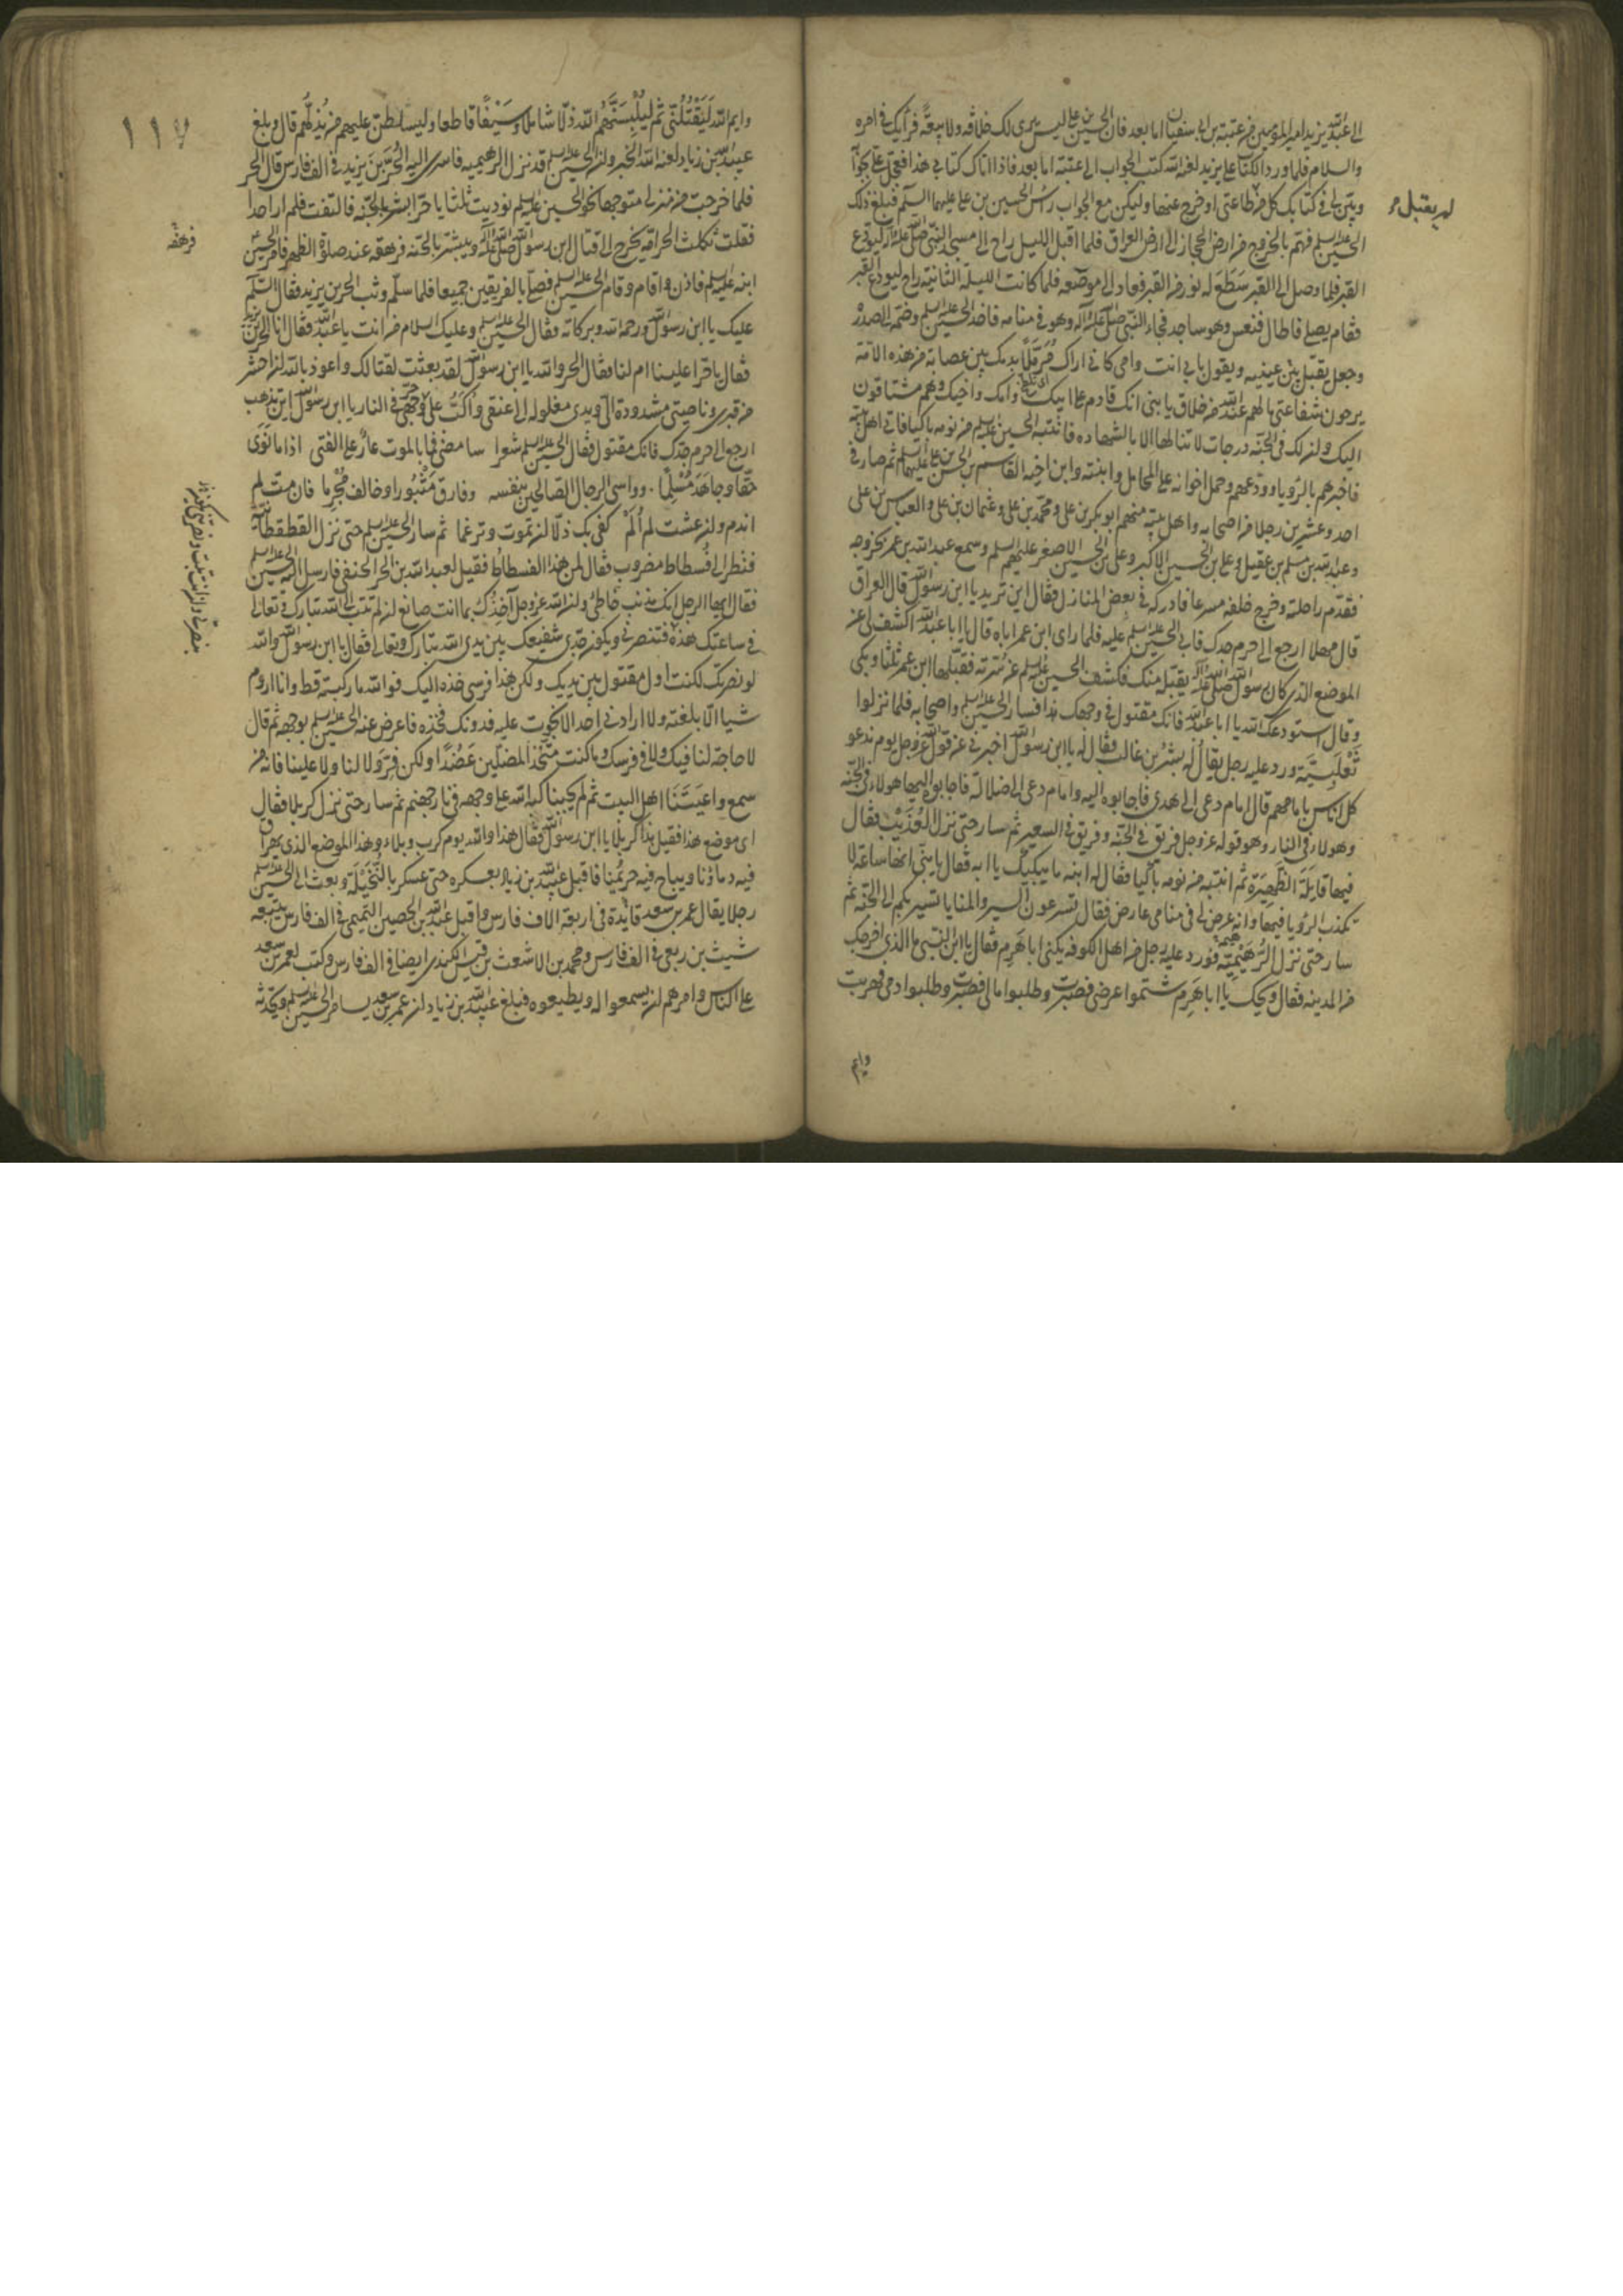 الى عبد الله يزيد امير المؤمنين من عتبة بن ابى سفيان اما بعد فان الحسين بن على ليس يرى لك خلافة ولا بيعة فرأيك فى امره
والسلام فلما ورد الكتاب على يزيد لعنه الله كتب الجواب الى عتبة اما بعد فاذا اتاك كتابى هذا فعجل على بجوابه
وبين لى فى كتابك كل من فى طاعتى او خرج عنها وليكن مع الجواب رأس الحسين بن على عليهما السلم فبلغ ذلك
الحسين عليه السلم فهم بالخروج من ارض الحجاز الى ارض العراق فلما اقبل الليل راح الى مسجد النبى صلى الله عليه وآله ليودع
القبر فلما وصل الى القبر سطع له نور من القبر فعاد الى موضعه فلما كانت الليلة الثانية راح ليودع القبر
فقام يصلى فاطال فنعس وهو ساجد فجاء النبى صلى الله عليه وآله وهو فى منامه فاخذ الحسين عليه السلم وضمه الى صدره
وجعل يقبل بين عينيه ويقول بابى انت وامى كانى اراك مرملا بدمك بين عصابة من هذه الامة
يرجون شفاعتى ما لهم عند الله من خلاق يا بنى انك قادم على ابيك وامك واخيك وهم مشتاقون
اليك وان لك فى الجنة درجات لا تنالها الا بالشهاده فانتبه الحسين عليه السلم من نومه باكيا فاتى اهل بيته
فاخبرهم بالرؤيا وودعهم وحمل اخواته على المحامل وابنته وابن اخيه القاسم بن الحسن بن على عليهم السلم ثم صار فى
احد وعشرين رجلا من اصحابه واهل بيته منهم ابو بكر بن على ومحمد بن على وعثمان بن على والعباس بن على
وعبد الله بن مسلم بن عقيل وعلى بن الحسين الاكبر وعلى بن الحسين الاصغر عليهم السلم وسمع عبد الله بن عمر بخروجه
فقدم راحلته وخرج خلفه مسرعا فادركه فى بعض المنازل فقال اين تريد يا ابن رسول الله قال العراق
قال مهلا ارجع الى حرم جدك فابى الحسين عليه السلم عليه فلما راى ابن عمر اباه قال يا ابا عبد الله اكشف لى عن
الموضع الذى كان رسول الله صلى الله عليه وآله يقبله منك فكشف الحسين عليه السلم عن سرته فقبلها ابن عمر ثلثا وبكى
وقال استودعك الله يا ابا عبد الله فانك مقتول فى وجهك هذا فسار الحسين عليه السلم واصحابه فلما نزلوا
ثعلبية ورد عليه رجل يقال له بشر بن غالب فقال له يا ابن رسول الله اخبرنى عن قول الله عز وجل يوم ندعو
كل اناس بامامهم قال امام دعى الى هدى فاجابوه اليه وامام دعى الى ضلالة فاجابوه اليها هولاء فى الجنه
وهولاء فى النار وهو قوله عز وجل فريق فى الجنة وفريق فى السعير ثم سار حتى نزل العذيب فقال
فيها قايلة الظهيرة ثم انتبه من نومه باكيا فقال له ابنه ما يبكيك يا ابه فقال يا بنى انها ساعة لا
تكذب الرؤيا فيها وانه عرض لى فى منامى عارض فقال تسرعون السير والمنايا تسير بكم الى الجنة ثم
سار حتى نزل الرهيمة فورد عليه رجل من اهل الكوفه يكنى ابا هرم فقال يا ابن النبى ما الذى اخرجك
من المدينه فقال ويحك يا ابا هرم شتموا عرضى فصبرت وطلبوا مالى فصبرت وطلبوا دمى فهربت
وايم
وايم الله ليقتلنى ثم ليلبسنهم الله ذلا شاملا وسيفا قاطعا وليسلطن عليهم من يذلهم قال وبلغ
عبيد الله بن زياد لعنه الله الخبر وان الحسين عليه السلم قد نزل الرهيميه فاسرى اليه الحر بن يزيد فى الف فارس قال الحر
فلما خرجت من منزلى متوجها نحو الحسين عليه السلم نوديت ثلثا يا حر ابشر بالجنه فالتفت فلم ار احدا
فقلت ثكلت الحر امه يخرج الى قتال ابن رسول الله صلى الله عليه وآله ويبشر بالجنه فرهقه عند صلوة الظهر فامر الحسين
ابنه عليه السلم فاذن واقام وقام الحسين عليه السلم فصلى بالفريقين جميعا فلما سلم وثب الحر بن يزيد فقال السلم
عليك يا ابن رسول الله ورحمة الله وبركاته فقال الحسين عليه السلم وعليك السلام من انت يا عبد الله فقال انا الحر بن يزيد
فقال يا حر اعلينا ام لنا فقال الحر والله يا ابن رسول الله لقد بعثت لقتالك واعوذ بالله ان احشر
من قبرى وناصيتى مشدودة الى ويدى مغلوله الى عنقى واكب على وجهى فى النار يا ابن رسول الله اين تذهب
ارجع الى حرم جدك فانك مقتول فقال الحسين عليه السلم شعرا سامضى فما بالموت عار على الفتى اذا ما نوى
حقا وجاهد مسلما وواسى الرجال الصالحين بنفسه وفارق مثبورا وخالف مجرما فان مت لم
اندم وان عشت لم الم كفى بك ذلا ان تموت وترغما ثم سار الحسين عليه السلم حتى نزل القطقطانة
فنظر الى فسطاط مضروب فقال لمن هذا الفسطاط فقيل لعبد الله بن الحر الحنفى فارسل اليه الحسين عليه السلم
فقال ايها الرجل انك مذنب خاطئ وان الله عز وجل آخذك بما انت صانع ان لم تتب الى الله تبارك وتعالى
فى ساعتك هذه فتنصرنى ويكون جدى شفيعك بين يدى الله تبارك وتعالى فقال يا ابن رسول الله والله
لو نصرتك لكنت اول مقتول بين يديك ولكن هذا فرسى خذه اليك فوالله ما ركبته قط وانا اروم
شيا الا بلغته ولا ارادنى احد الا نجوت عليه فدونك فخذه فاعرض عنه الحسين عليه السلم بوجهه ثم قال
لا حاجة لنا فيك ولا فى فرسك وما كنت متخذ المضلين عضدا ولكن فر ولا لنا ولا علينا فانه من
سمع واعيتنا اهل البيت ثم لم يجبنا كبه الله على وجهه فى نار جهنم ثم سار حتى نزل كربلا فقال
اى موضع هذا فقيل هذا كربلا يا ابن رسول الله فقال هذا والله يوم كرب وبلاء وهذا الموضع الذى يهراق
فيه دماؤنا ويباح فيه حريمنا فاقبل عبيد الله بن زياد بعسكره حتى عسكر بالنخيلة وبعث الى الحسين عليه السلم
رجلا يقال عمر بن سعد قايده فى اربعة الاف فارس واقبل عبد الله بن الحصين التميمى فى الف فارس يتبعه
شيث بن ربعى فى الف فارس ومحمد بن الاشعث بن قيس الكندى ايضا فى الف فارس وكتب لعمر بن سعد
على الناس وامرهم ان يسمعوا له ويطيعوه فبلغ عبيد الله بن زياد ان عمر بن سعد يسامر الحسين عليه السلم ويحدثه
١١٧
فرهقه